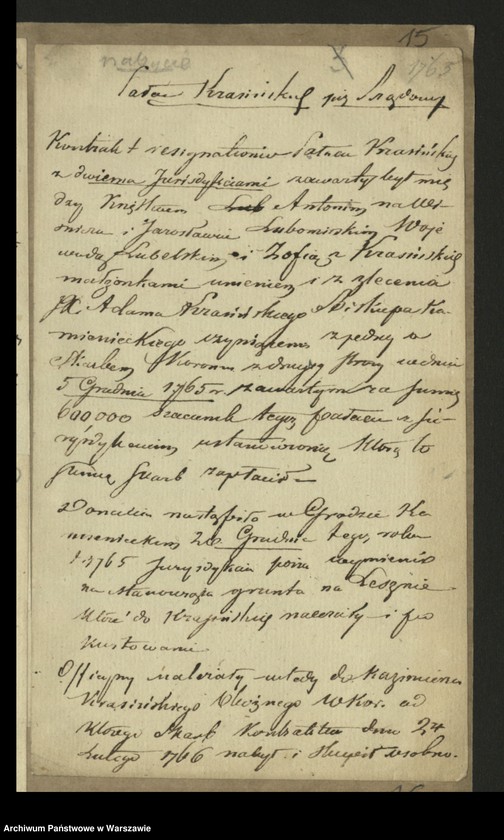 15
nabycie 3 1763
Pałac Krasińskich przy Rządowy
Kontrakt resignationis Pałacu Krasińskiej
z dwiema Jurisdykciami zawarty był mię
dzy Xiążęciem Lub Antonim na Wi
śniczu i Jarosławiu Lubomirskim Woje
wodą Lubelskim, i Zofią z Krasińskich
małżonkami imieniem i z zlecenia
JX. Adama Krasińskiego Biskupa Ka
mienieckiego czyniącemi z jedney a
Skarbem Koronnym z drugiey strony w dniu
5 Grudnia 1765 r. zawartym za summę
600 000 szacunek tegoż pałacu z ju-
rysdykciami ustanowioną którą to
summę Skarb zapłacił
Donacia nastąpiła w Grodzie Ka
mienieckim 20 Grudnia tegoż roku
1765 Jurysdykcia
na Stanowiące grunta na Lesznie
które do Krasińskiej należały i
Oficyny należały wtedy do Kazimierza
Krasińskiego Oboźnego W Kor. od
którego Skarb Kontraktem dnia 24
Lutego 1766 nabył i osobno.
Archiwum Państwowe w Warszawie